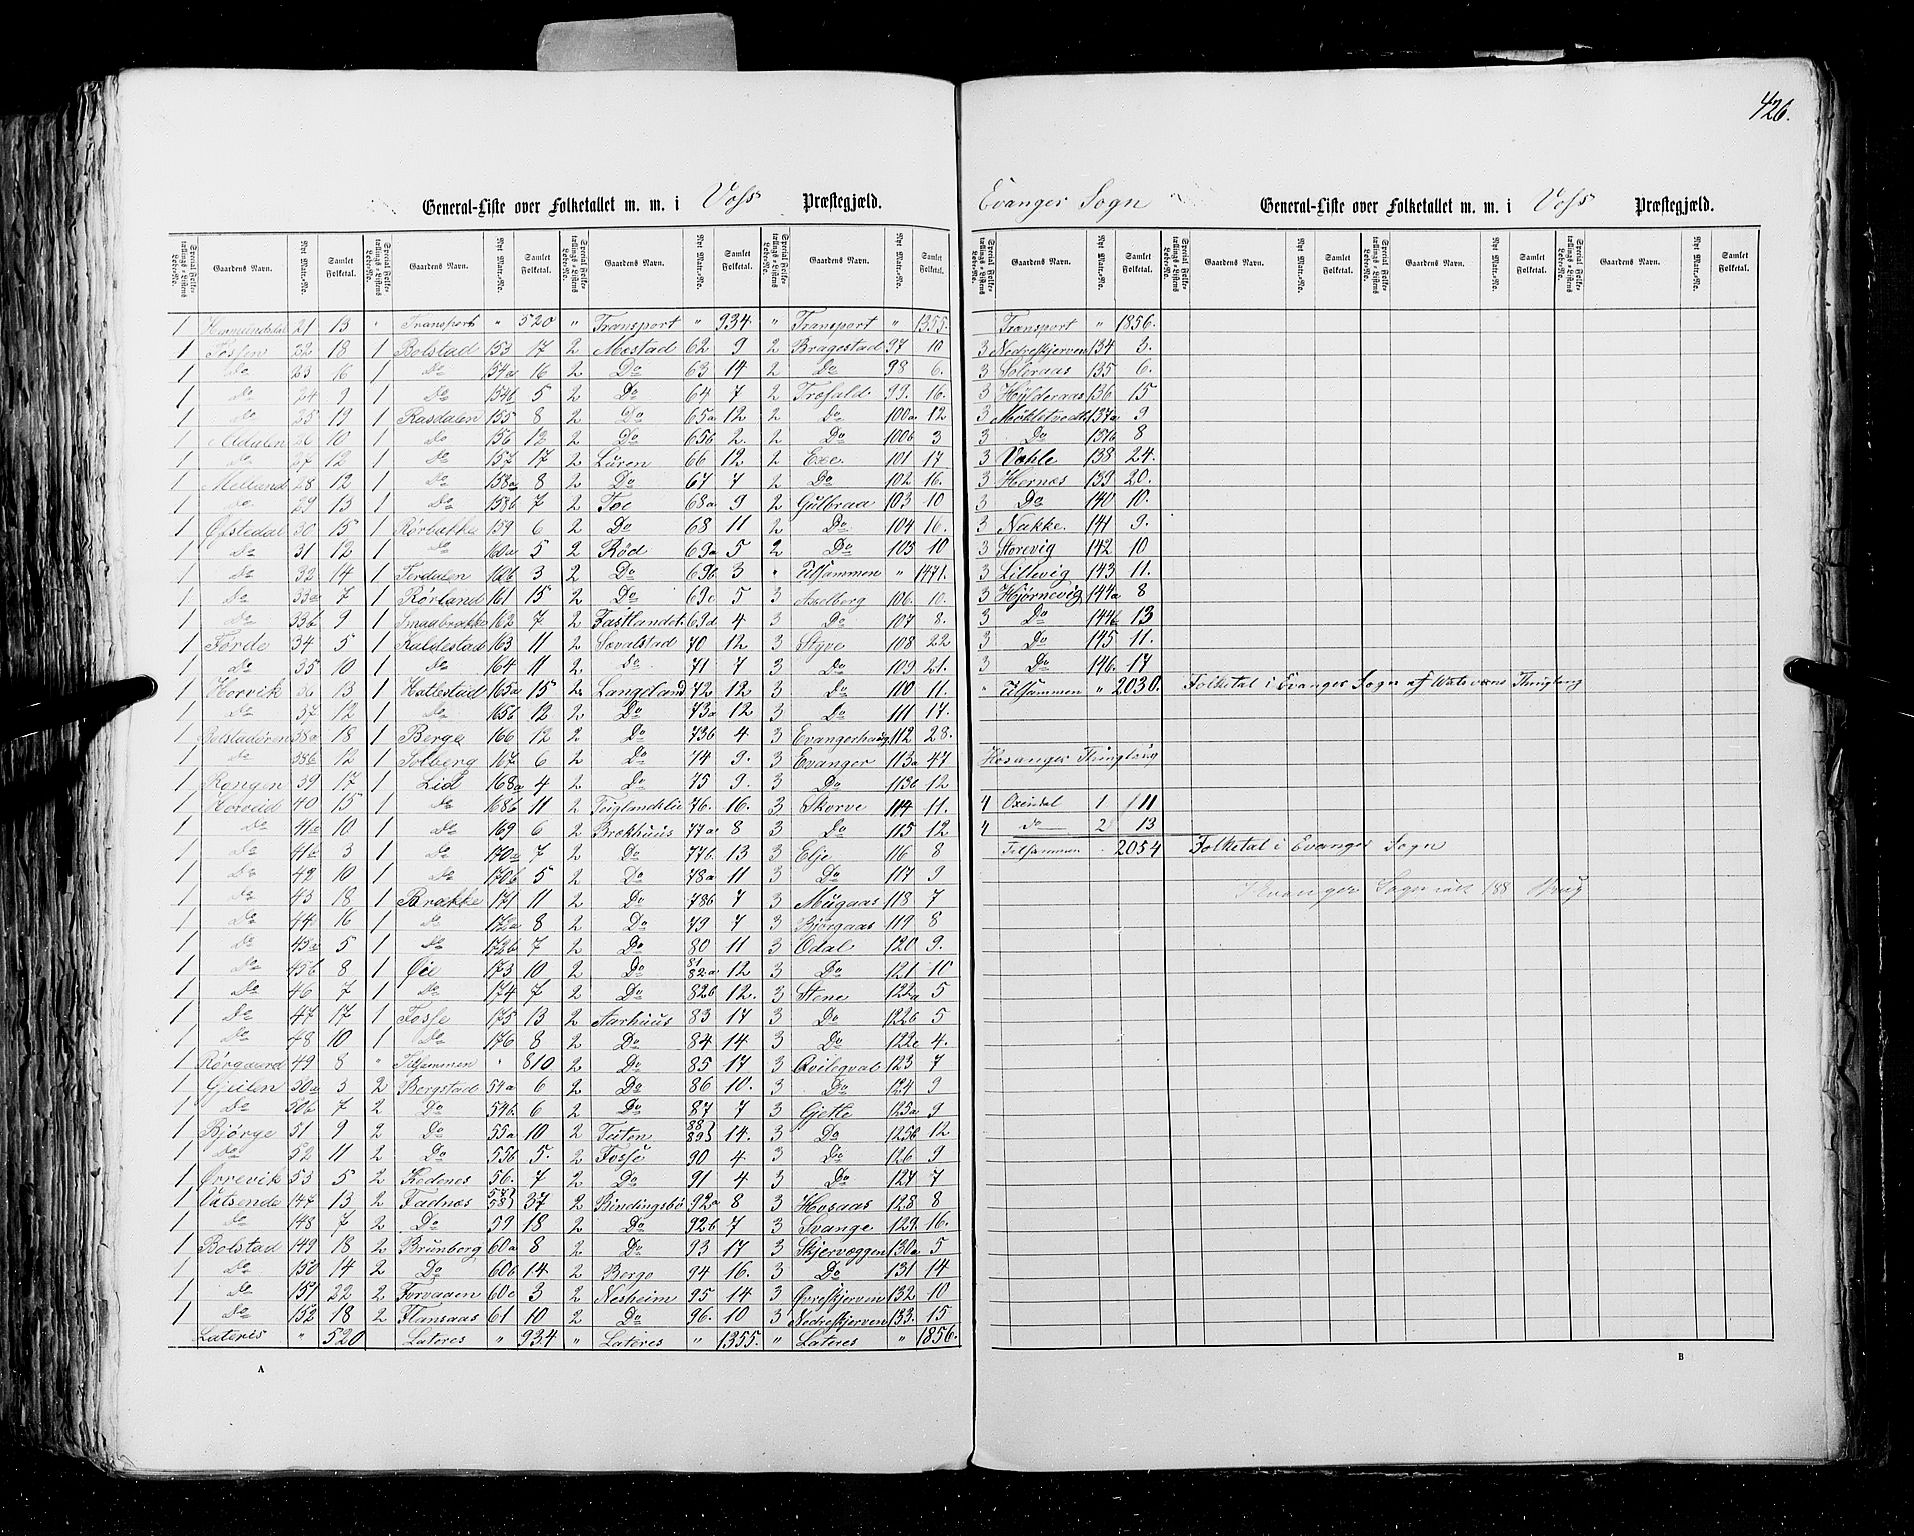 426.
General-Liste over Folketallet m. m. i Voss Præstegjæld.
Evanger Sogn General-Liste over Folketallet m. m. i Voss Præstegjæld.
Special Folketællings-Listens Løbe-No. Gaardens Navn. Nyt Matr.-No. Samlet Folketal. Special Folketællings-Listens Løbe-No. Gaardens Navn. Nyt Matr.-No. Samlet Folketal. Special Folketællings-Listens Løbe-No. Gaardens Navn. Nyt Matr.-No. Samlet Folketal. Special Folketællings-Listens Løbe-No. Gaardens Navn. Nyt Matr.-No. Samlet Folketal.
1 21 13 " Transport " 520 " Transport " 934. " Transport " 1355.
1 Fosfen 22 18 1 Bolstad 153 17 2 Mestad 62 9 2 Bragestad 97 10
1 Do 23 16 1 Do 154a 16 2 Do 63 14 2 Do 98 6.
1 Do 24 9 1 Do 154b 5 2 Do 64 7 2 Trefald 99. 16.
1 Do 25 19 1 Rasdalen 155 8 2 Do 65a 12 2 Do 100a 12
1 26 10 1 Do 156 12 2 Do 65b 2. 2 Do 100b 3
1 Do 27 12 1 Do 157 17 2 Lüren 66 12 2 Exe. 101 17
1 Melland 28 12 1 Do 158a 8 2 Do 67 7 2 Do 102 16.
1 Do 29 13 1 Do 158b 7 2 Foe 68a 9 2 Gulbraa 103 10
1 Øfstedal 30 15 1 Rörbakke 159 6 2 Do 68 11 2 Do 104 16.
1 Do 31 12 1 Do 160a 5 2 Rød 69a 5 2 Do 105 10
1 Do 32 14 1 160b 3 2 Do 69b 3 " Tilsammen " 1471.
1 Do 33a 7 1 Rørland 161 15 2 Do 69c 5 3 Asselberg 106. 10.
1 Do 33b 9 1 Smaabrække 162 7 2 Fastlandet 69d 4 3 Do 107 8.
1 Førde 34 5 1 Kaldestad 163 11 2 Sævalstad 70 12 3 Styve 108 22
1 Do 35 10 1 Do 164 11 2 Do 71 7 3 Do 109 21.
1 Horvik 36 13 1 Hallestad 165a 15 2 Langeland 72 12 3 Do 110 11.
1 Do 37 12 1 Do 165b 12 2 Do 73a 12 3 Do 111 17.
1 Bolstadøren 38a 18 1 Berge 166 12 2 Do 73b 4 3 Evangerhaug 112 28.
1 Do 38b 12 1 Solberg 167 6 2 Do 74 9. 3 Evanger 113a 47
1 Rongen 39 17 1 Lid 168a 4 2 Do 75 9. 3 Do 113b 12
1 Horveid 40 15 1 Do 168b 11 2 Teiglandslie 76. 16. 3 Skorve 114 11.
1 Do 41a 10 1 Do 169 6 2 Brækhuus 77a 8 3 Do 115 12
1 Do 41b 3 1 Do 170a 7 2 Do 77b. 13 3 Elje 116 8
1 Do 42 10 1 Do 170b 5 2 Do 78a 11 3 Do 117 9
1 Do 43 18 1 Brække 171 11 2 Do 78b 7 3 Mügaas 118 7
1 Do 44 16 1 Do 172a 8 2 Do 79 7 3 Bjørgaas 119 8
1 Do 45a 5 1 Do 172b 7 2 Do 80 11 3 Odal 120 9.
1 Do 45b 8 1 Øie 173 10 2 Do 81 82a 12 3 Do 121 10
1 Do 46 7 1 Do 174 7 2 Do 82b 12. 3 Stene 122a 5
1 Do 47 17 1 Fosse 175 13 2 Aarhuus 83 17 3 Do 122b 5
1 Do 48 10 1 Do 176 8 2 Do 84 14 3 Do 122c 4.
1 Rørgaard 49 8 " Tilsammen " 810 2 Do 85 17 3 Qvilegval 123 7
1 Gjeilen 50a 5 2 Bergstad 54a 6 2 Do 86 10. 3 Do 124 9
1 Do 50b 7 2 Do 54b 6 2 Do 87 7 3 Gjette 125a 9
1 Bjørge 51 9 2 Do 55a 10 2 Teiten 88 89 14. 3 Do 125b 12
1 Do 52 11 2 Do 55b 5. 2 Fosse 90 4 3 Do 126 9
1 Ørrevik 53 5 2 Kodenes 56. 7 2 Do 91 4 3 Do 127 7
1 Vatsende 147 13 2 Fadnæs 57 58 37 2 Bindingsbø 92a 8 3 Hosaas 128 8
1 Do 148 7 2 Do 59 18 2 Do 92b 7 3 Svange 129. 16.
1 Bolstad 149 18 2 Brunborg 60a 8 2 Do 93 17 3 Skjervæggen 130a 5
1 Do 150 14 2 Do 60b 14 2 Berge 94 16. 3 Do 131 14
1 Do 151 22 2 Forvaaen 60c 3 2 Nesheim 95 14 3 Øvreskjerven 132 10
1 Do 152 18 2 Flansaas 61 10 2 Do 96. 10 3 Nedreskjerven 133. 15
Lateres " 520 Lateres " 934 " Lateres " 1355. " Lateres " 1856.
A
Special Folketællings-Listens Løbe-No. Gaardens Navn. Nyt Matr.-No. Samlet Folketal. Special Folketællings-Listens Løbe-No. Gaardens Navn. Nyt Matr.-No. Samlet Folketal. Special Folketællings-Listens Løbe-No. Gaardens Navn. Nyt Matr.-No. Samlet Folketal. Special Folketællings-Listens Løbe-No. Gaardens Navn. Nyt Matr.-No. Samlet Folketal.
Transport " 1856.
3 Nedreskjerven 134 3.
3 Soleraas 135 6.
3 Hylderaas 136 15
3 Møkletvedt 137a 9
3 Do 137b 8
3 Vahle 138 24.
3 Hernes 139 20.
3 Do 140 10.
3 Nakke. 141 9.
3 Storevig 142 10
3 Lillevig 143 11.
3 Hjørnevig 144a 8
3 Do 144b 13
3 Do 145 11.
3 Do 146. 17
" Tilsammen " 2030. Folketal i Evanger Sogn af Thinglaug
Hosanger Thinglaug
4 Oxendal 1 11
4 Do 2 13
Tilsammen . 2054 Folketal i Evanger Sogn
I Evanger Sogn 188 Brug
B